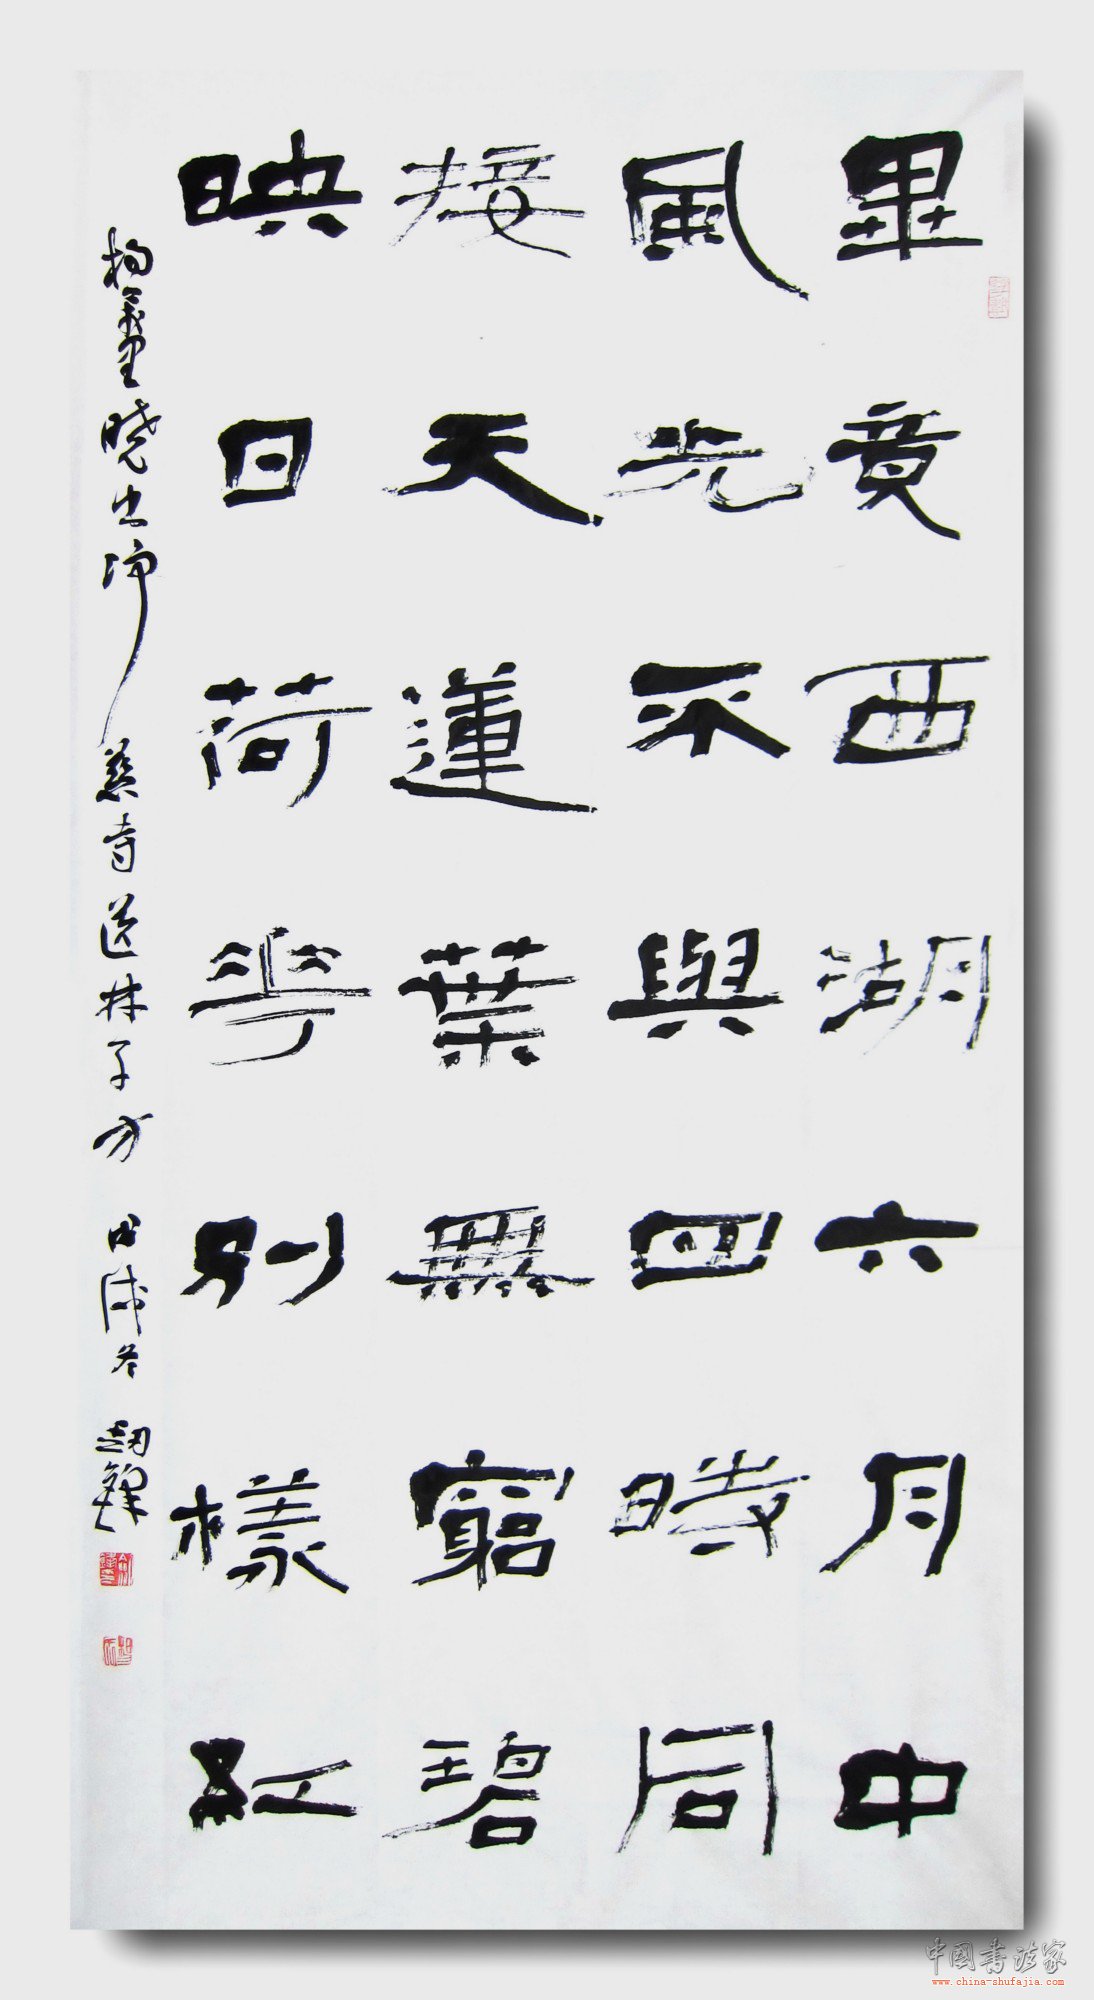 畢竟西湖六月中
風光不與四時同
接天蓮葉無窮碧
映日荷花別樣紅
楊萬里曉出淨慈寺送林子方 甲戌冬
中國書法家
www.china-shufajia.com